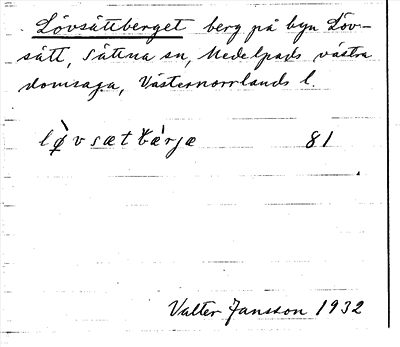 Lövsättberget berg på byn Löv-
sätt, Sättna sn, Medelpads västra
domsaga, Västernorrlands l.
lø̀vsætbæ̀rjæ 81
Valter Jansson 1932